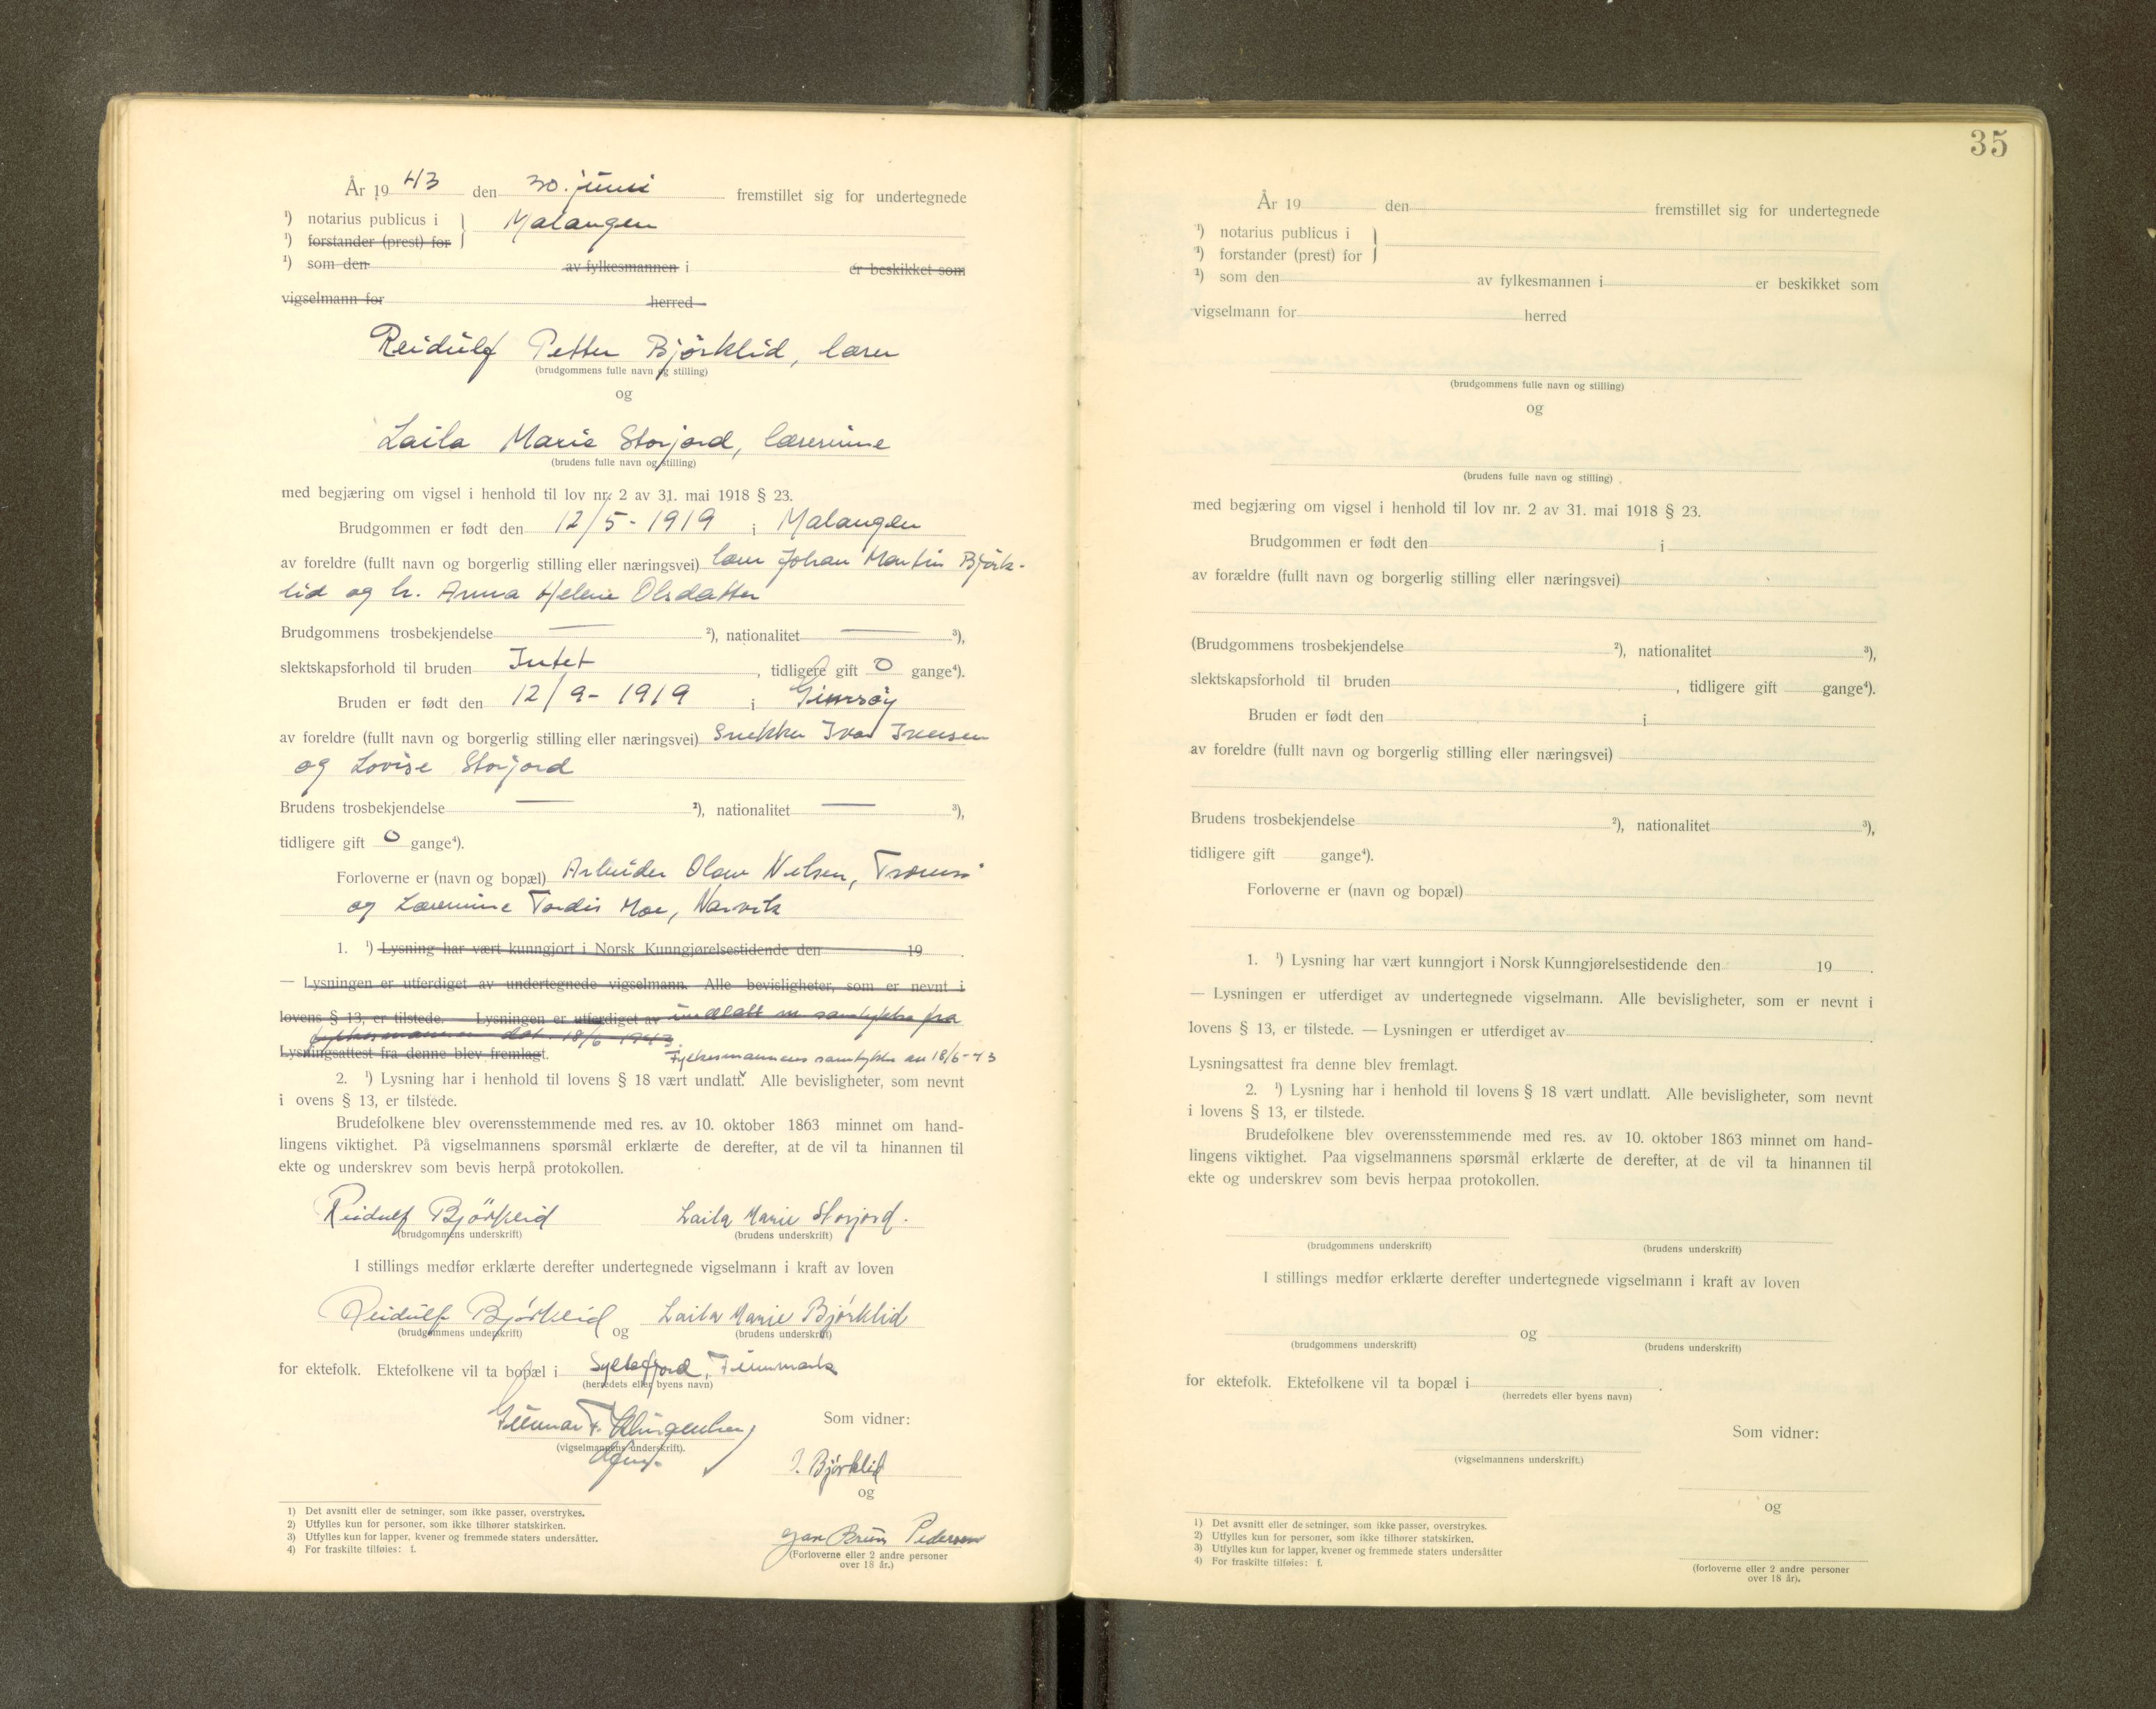 År 19 43 den 30. juni fremstillet sig for undertegnede
¹) notarius publicus i } Malangen
¹) forstander (prest) for
¹) som den av fylkesmannen i er beskikket som
vigselmann for herred
Reidulf Petter Bjørklid, lærer
(brudgommens fulle navn og stilling)
og
Laila Marie Storjord, lærerinne
(brudens fulle navn og stilling)
med begjæring om vigsel i henhold til lov nr. 2 av 31. mai 1918 § 23.
Brudgommen er født den 12/5 - 1919 i Malangen
av foreldre (fullt navn og borgerlig stilling eller næringsvei) lærer Johan Martin Bjørk-
lid og h. Anna Helene Olsdatter
Brudgommens trosbekjendelse — ²), nationalitet — ³),
slektskapsforhold til bruden Intet, tidligere gift 0 gange⁴).
Bruden er født den 12/9 - 1919 i Gimsøy
av foreldre (fullt navn og borgerlig stilling eller næringsvei) Snekker Ivar Iversen
og Lovise Storjord
Brudens trosbekjendelse — ²), nationalitet — ³),
tidligere gift 0 gange⁴).
Forloverne er (navn og bopæl) Arbeider Olav Nilsen, Tromsø
og Lærerinne Tordis Moe, Narvik
1. ¹) Lysning har vært kunngjort i Norsk Kunngjørelsestidende den 19 .
— Lysningen er utferdiget av undertegnede vigselmann. Alle bevisligheter, som er nevnt i
lovens § 13, er tilstede. — Lysningen er utferdiget av undlatt m samtykke fra
fylkesmannen dat. 18/6 1943.
Lysningsattest fra denne blev fremlagt. Fylkesmannens samtykke av 18/6-43
2. ¹) Lysning har i henhold til lovens § 18 vært undlatt. Alle bevisligheter, som nevnt
i ovens § 13, er tilstede.
Brudefolkene blev overensstemmende med res. av 10. oktober 1863 minnet om hand-
lingens viktighet. På vigselmannens spørsmål erklærte de derefter, at de vil ta hinannen til
ekte og underskrev som bevis herpå protokollen.
Reidulf Bjørklid Laila Marie Storjord.
(brudgommens underskrift) (brudens underskrift)
I stillings medfør erklærte derefter undertegnede vigselmann i kraft av loven
Reidulf Bjørklid og Laila Marie Bjørklid
(brudgommens underskrift) (brudens underskrift)
for ektefolk. Ektefolkene vil ta bopæl i Syltefjord, Finnmark
(herredets eller byens navn)
Gunnar F. Klingenberg Som vidner:
(vigselmannens underskrift).
J. Bjørklid
og
Jan Brun Pedersen
(Forloverne eller 2 andre personer
over 18 år.)
1) Det avsnitt eller de setninger, som ikke passer, overstrykes.
2) Utfylles kun for personer, som ikke tilhører statskirken.
3) Utfylles kun for lapper, kvener og fremmede staters undersåtter.
4) For fraskilte tilføies: f.
35
År 19 den fremstillet sig for undertegnede
¹) notarius publicus i }
¹) forstander (prest) for
¹) som den av fylkesmannen i er beskikket som
vigselmann for herred
(brudgommens fulle navn og stilling)
og
(brudens fulle navn og stilling)
med begjæring om vigsel i henhold til lov nr. 2 av 31. mai 1918 § 23.
Brudgommen er født den i
av forældre (fullt navn og borgerlig stilling eller næringsvei)
(Brudgommens trosbekjendelse ²), nationalitet ³),
slektskapsforhold til bruden , tidligere gift gange⁴).
Bruden er født den i
av foreldre (fullt navn og borgerlig stilling eller næringsvei)
Brudens trosbekjendelse ²), nationalitet ³),
tidligere gift gange⁴).
Forloverne er (navn og bopæl)
1. ¹) Lysning har vært kunngjort i Norsk Kunngjørelsestidende den 19 .
— Lysningen er utferdiget av undertegnede vigselmann. Alle bevisligheter, som er nevnt i
lovens § 13, er tilstede. — Lysningen er utferdiget av .
Lysningsattest fra denne blev fremlagt.
2. ¹) Lysning har i henhold til lovens § 18 vært undlatt. Alle bevisligheter, som nevnt
i lovens § 13, er tilstede.
Brudefolkene blev overensstemmende med res. av 10. oktober 1863 minnet om hand-
lingens viktighet. Paa vigselmannens spørsmål erklærte de derefter, at de vil ta hinannen til
ekte og underskrev som bevis herpaa protokollen.
(brudgommens underskrift) (brudens underskrift)
I stillings medfør erklærte derefter undertegnede vigselmann i kraft av loven
og
(brudgommens underskrift) (brudens underskrift)
for ektefolk. Ektefolkene vil ta bopæl i .
(herredets eller byens navn)
Som vidner:
(vigselmannens underskrift.)
og
(forloverne eller 2 andre personer
over 18 år).
1) Det avsnitt eller de setninger, som ikke passer, overstrykes.
2) Utfylles kun for personer, som ikke tilhører statskirken.
3) Utfylles kun for lapper, kvener og fremmede staters undersåtter
4) For fraskilte tilføies: f.